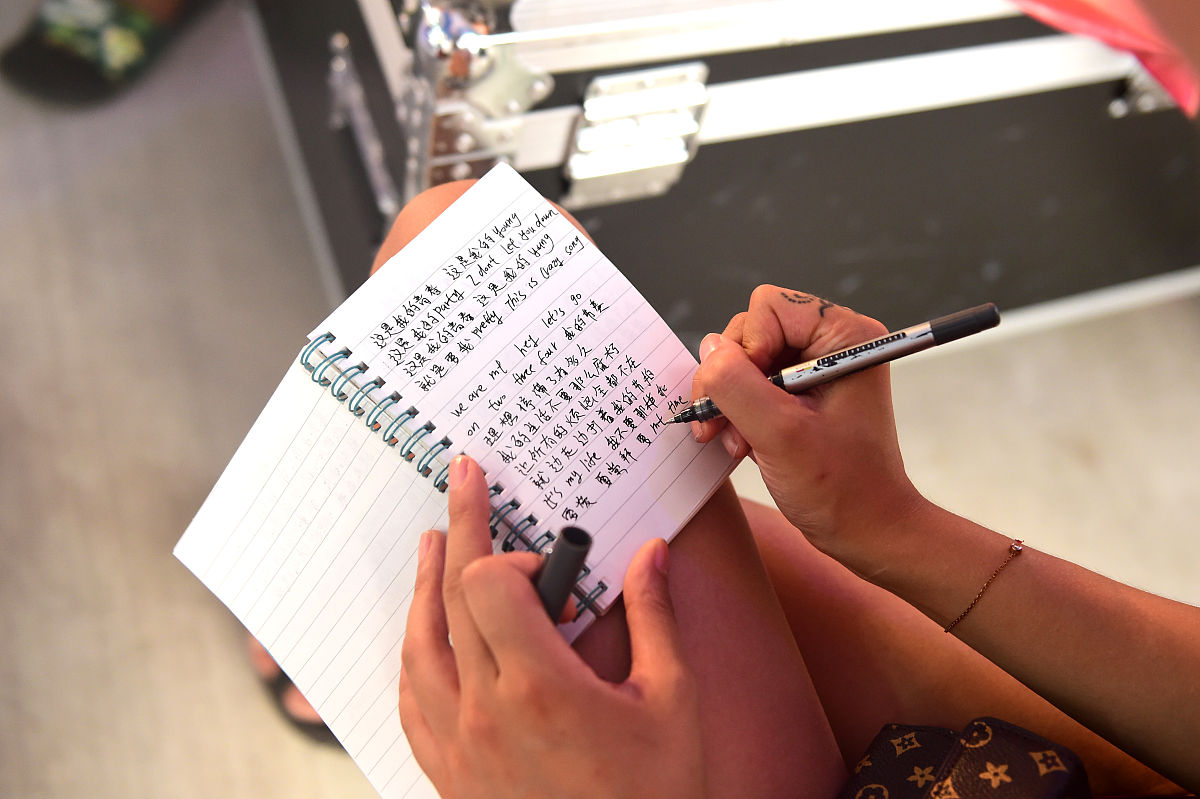 这是我的青春 这是我的young
这是我的party I don't let you down
这是我的青春 这是我的young
就是要我pretty This is crazy song
we are my hey let's go
on two three four 我的节奏
理想读懂了有多久
我的生活不要那么底标
让所有的烦恼全都不在
就边走边扑着我的节拍
it's my life 我不要那模样
要发 要美鲜 要 my time